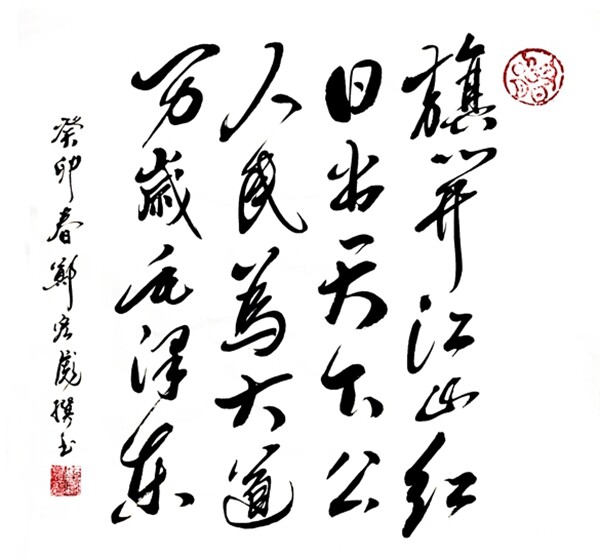 旗開江山红
日出天下公
人民為大道
万歲毛泽东
癸卯春鄭宏彪撰书